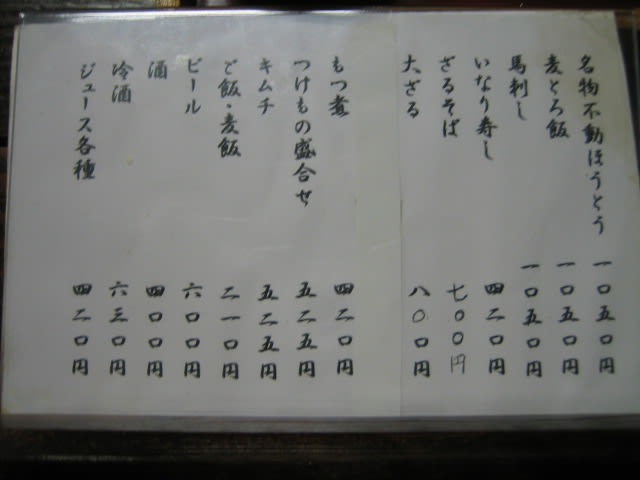 名物不動ほうとう 一〇五〇円
麦とろ飯 一〇五〇円
馬刺し 一〇五〇円
いなり寿し 四二〇円
ざるそば 七〇〇円
大ざる 八〇〇円
もつ煮 四二〇円
つけもの盛合せ 五二五円
キムチ 五二五円
ご飯・麦飯 二一〇円
ビール 六〇〇円
酒 四〇〇円
冷酒 六三〇円
ジュース各種 四二〇円